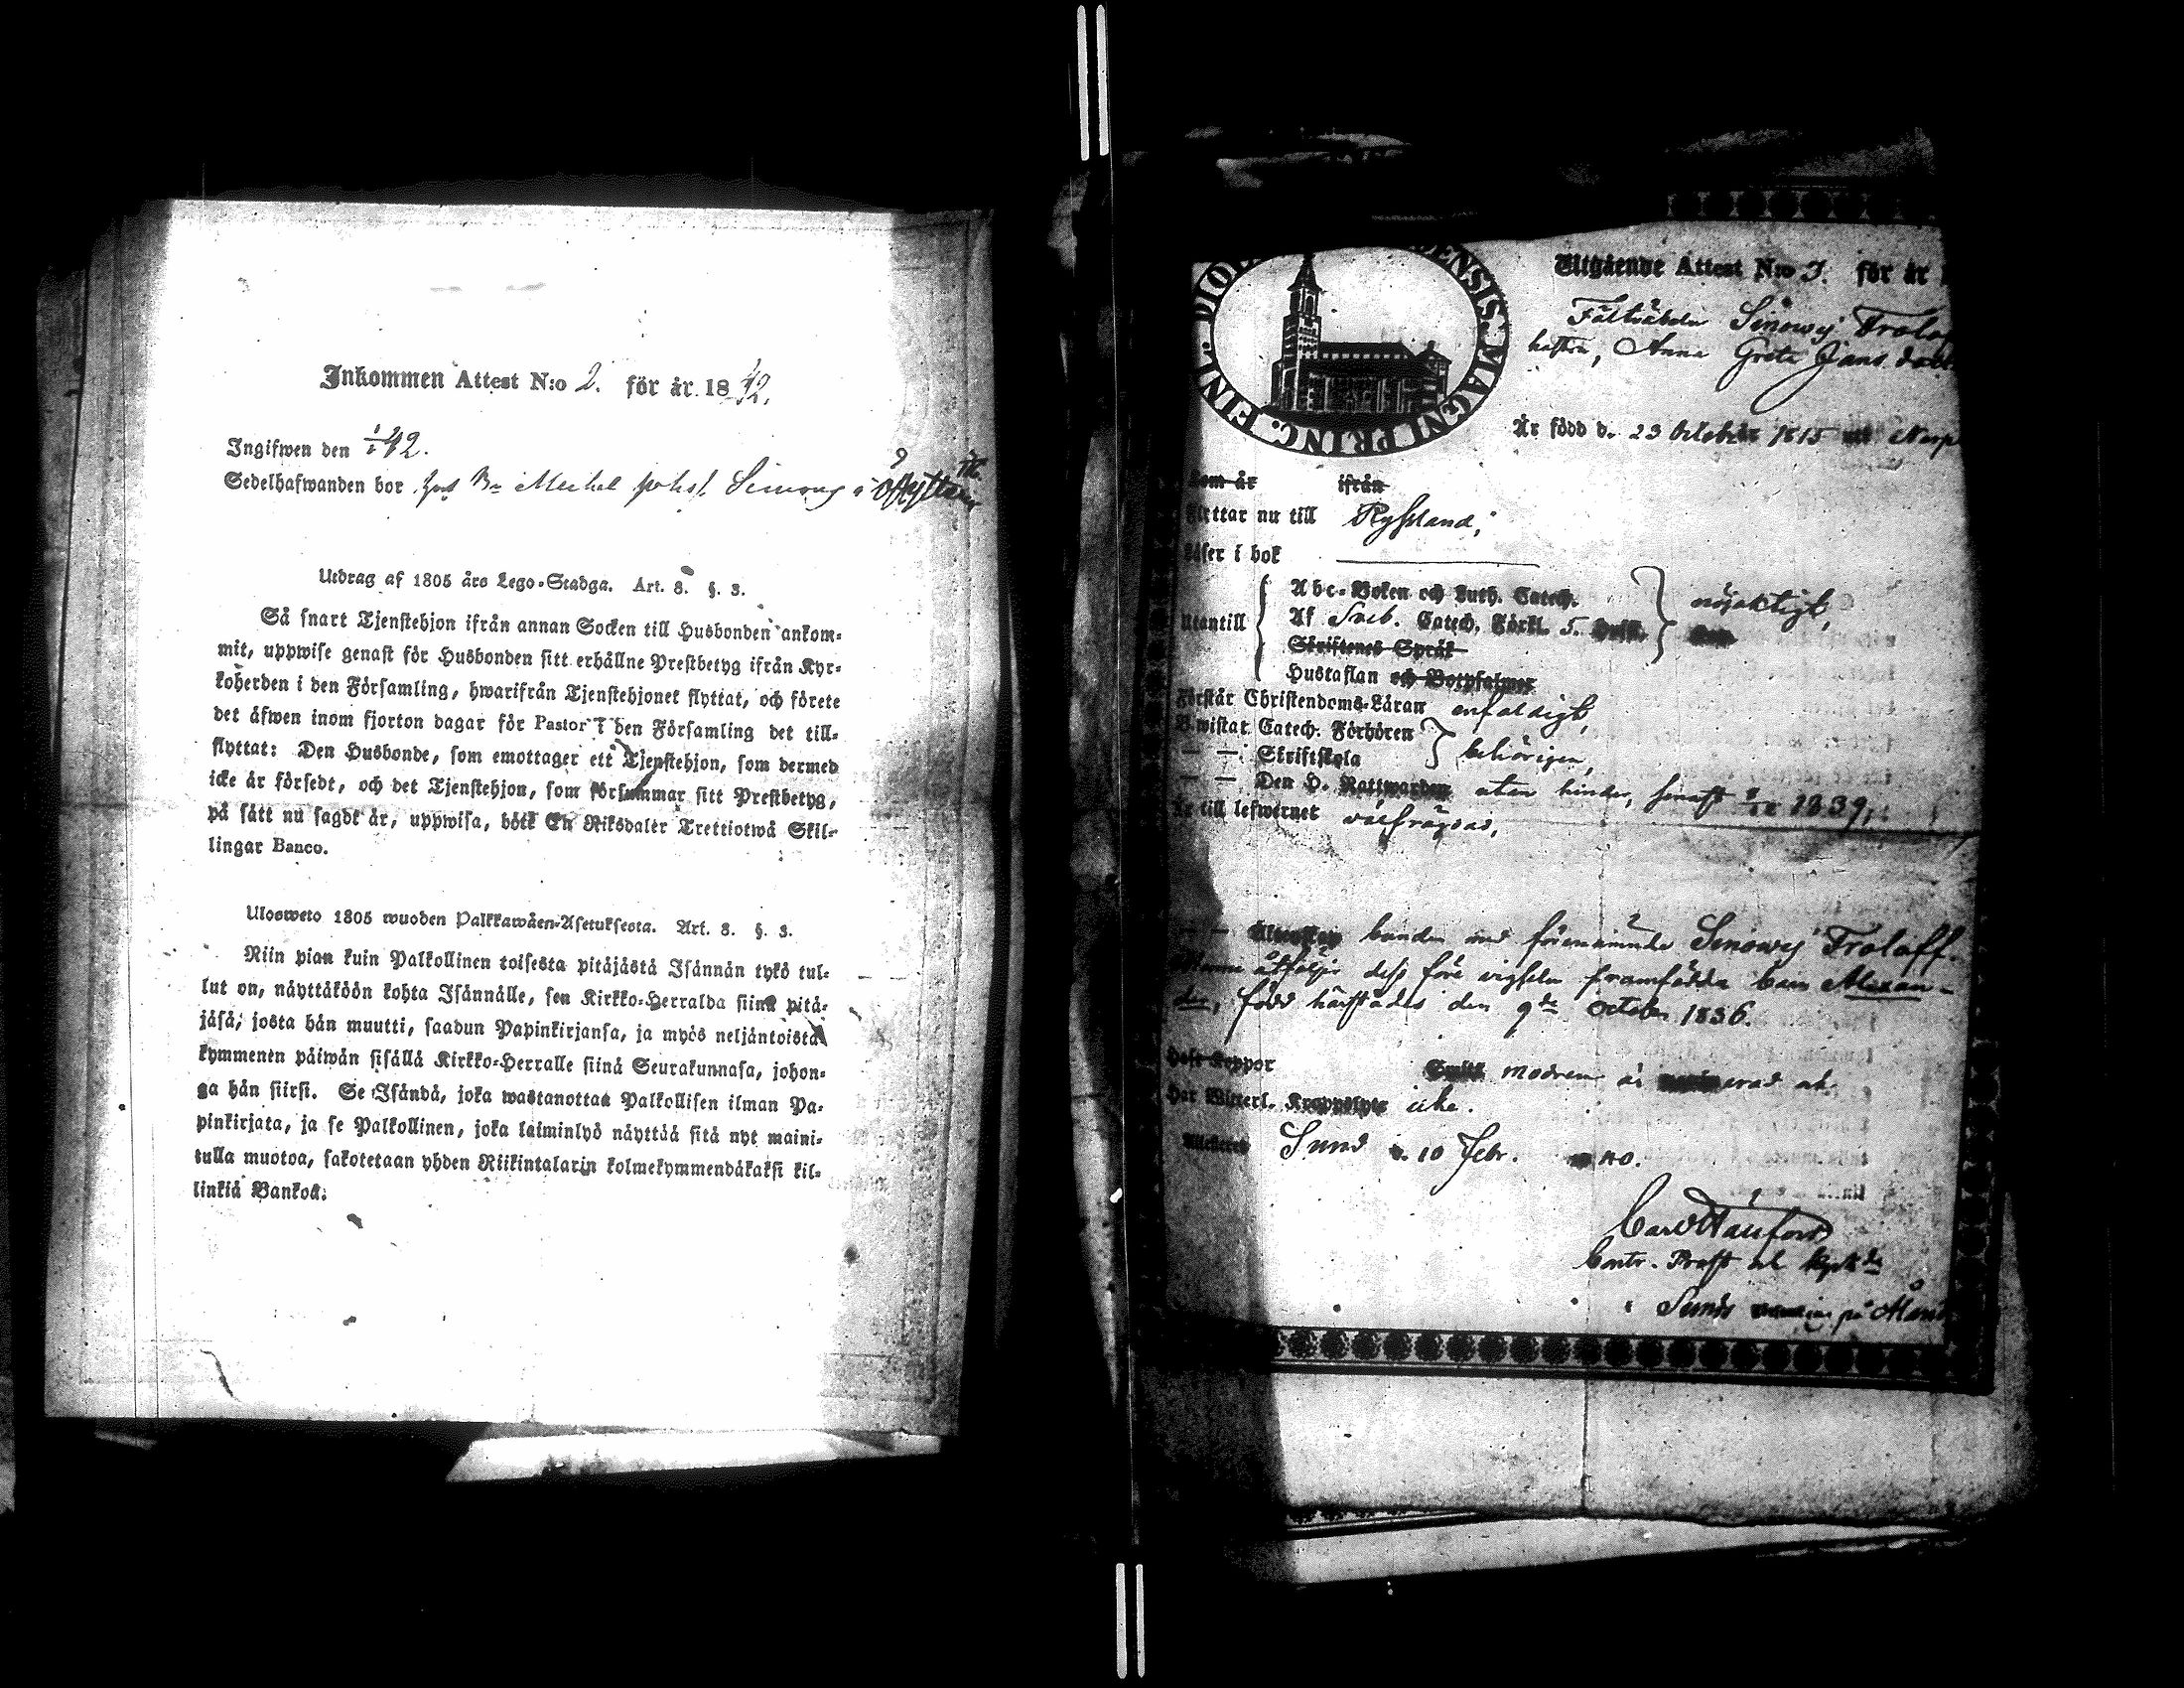 Inkommen Attest N:o 2. för år 1842.
Ingifwen den 1/1 42.
Sedelhafwanden bor
Utdrag af 1805 års Lego-Stadga. Art. 8. §. 3.
Så snart Tjenstehjon ifrån annan Socken till Husbonden ankom-
mit, uppwise genast för Husbonden sitt erhållne Prestbetyg ifrån Kyr-
koherden i den Församling, hwarifrån Tjenstehjonet flyttat, och förete
det äfwen inom fjorton dagar för Pastor i den Församling det till-
flyttat: Den Husbonde, som emottager ett Tjenstehjon, som dermed
icke är försedt, och det Tjenstehjon, som försummar sitt Prestbetyg,
på sätt nu sagdt är, uppwisa, böte En Riksdaler Trettiotwå Skil-
lingar Banco.
Ulosweto 1805 wuoden Palkkawäen-Asetuksesta. Art. 8. §. 3.
Niin pian kuin Palkollinen toisesta pitäjästä Isännän tykö tul-
lut on, näyttäköön kohta Isännälle, sen Kirkko-Herralda siinä pitä-
jäsä, josta hän muutti, saadun Papinkirjansa, ja myös neljäntoista
kymmenen päiwän sisällä Kirkko-Herralle siinä Seurakunnasa, johon-
ga hän siirsi. Se Isändä, joka wastanottaa Palkollisen ilman Pa-
pinkirjata, ja se Palkollinen, joka laiminlyö näyttää sitä nyt maini-
tulla muotoa, sakotetaan yhden Riikintalarin kolmekymmendäkaksi kil-
linkiä Bankoa.
ENSIS. MAGNI PRINC. FINL. DIO
Utgående Attest N:o 3. för år
Sinowij Frolof
Anna Greta Jans dott
Är född d. 23 October 1815
Som är ifrån
flyttar nu till Ryssland,
Läser i bok
Utantill
Abc-Boken och Luth. Catech.
Af Sveb. Catech. Förkl. 5.
nöjaktigt,
Skriftenes Språk
Hustaflan och Botpsalmer
Förstår Christendoms-Läran enfaldigt,
Bewistat Catech. Förhören
— — Skriftskola
behörigen,
— — Den H. Nattwarden utan hinder, senast 1839,
Är till lefwernet välfrägdad,
banden med förenämnde Sinowij Froloff.
åtföljer dess före vigseln framfödda barn Alexan-
der, född härstädes den 9de October 1836.
Haft Koppor
modren är
Har Witterl. icke.
Sund d. 10 Febr. 40.
Contr. Prost och Kyrkh
i Sunds på Åland